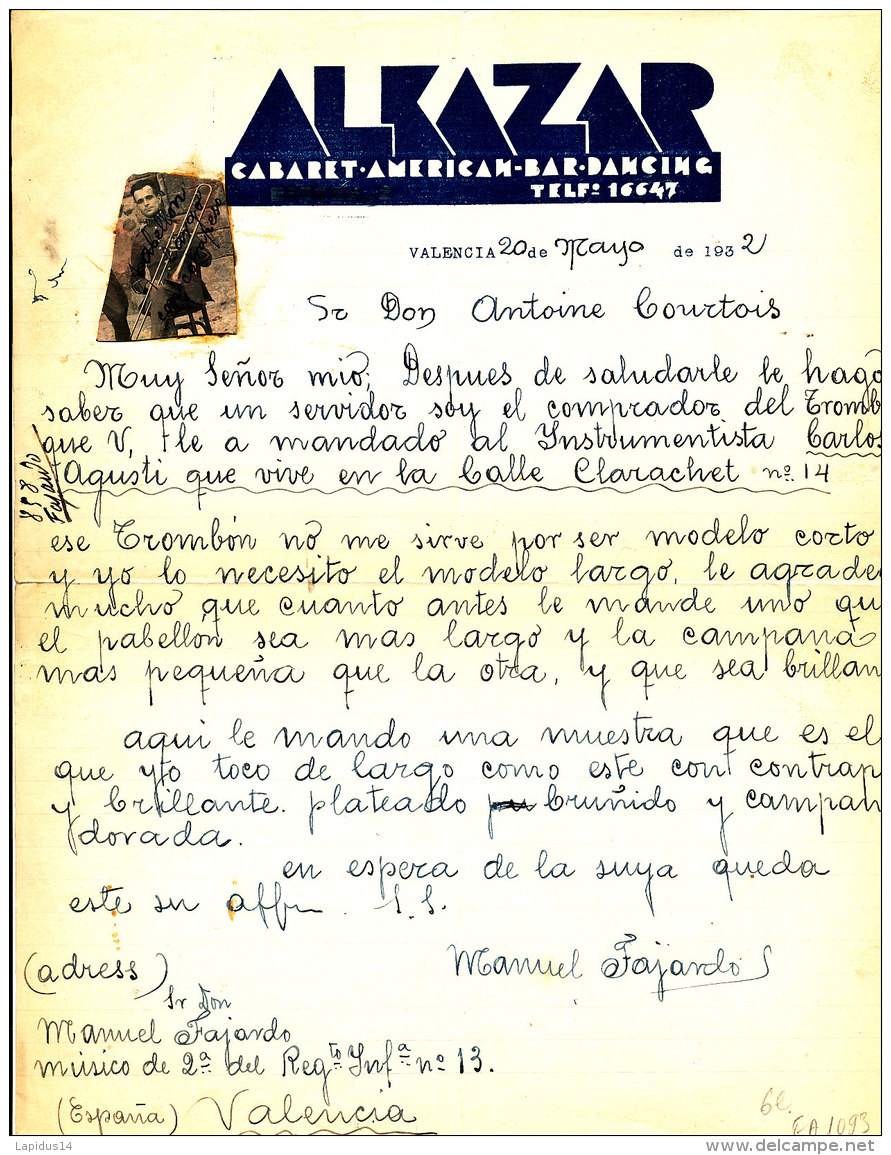 ALKAZAR
CABARET·AMERICAN-BAR·DANCING
TELFº 16647
pabellon
largo
con
VALENCIA 20 de Mayo de 1932
Sr Don Antoine Courtois
Muy Señor mio; Despues de saludarle le hago
saber que un servidor soy el comprador del Tromb
que V, le a mandado al Instrumentista Carlos
Agusti que vive en la Calle Clarachet nº 14
858
Fajardo
ese Trombón no me sirve por ser modelo corto
y yo lo necesito el modelo largo, le agrade
mucho que cuanto antes le mande uno qu
el pabellón sea mas largo y la campana
mas pequeña que la otra, y que sea brillan
aqui le mando una muestra que es el
que yo toco de largo como este con contrap
y brillante. plateado bruñido y campan
dorada.
en espera de la suya queda
este su affm S.S.
Manuel Fajardo
(adress)
Sr Don
Manuel Fajardo
músico de 2ª del Regto Infª nº 13.
(España) Valencia
6e.
EA1093
Lapidus14
www.delcampe.net